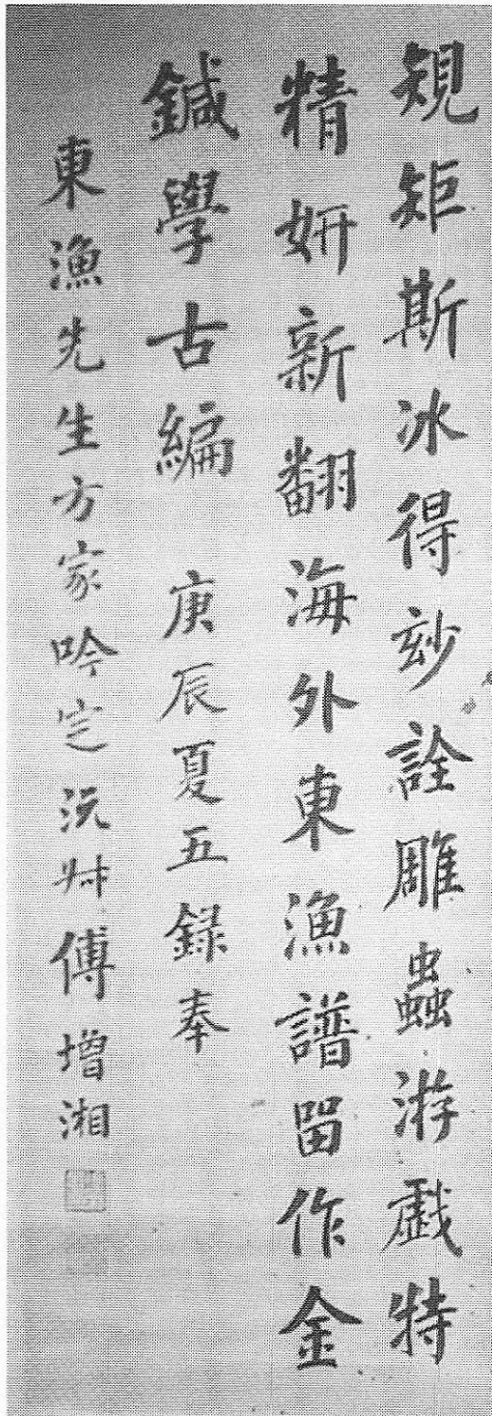 規矩斯冰得玅詮雕蟲游戲特
精妍新翻海外東漁譜留作金
鍼學古編　庚辰夏五録奉
東漁先生方家吟定沅尗傅增湘